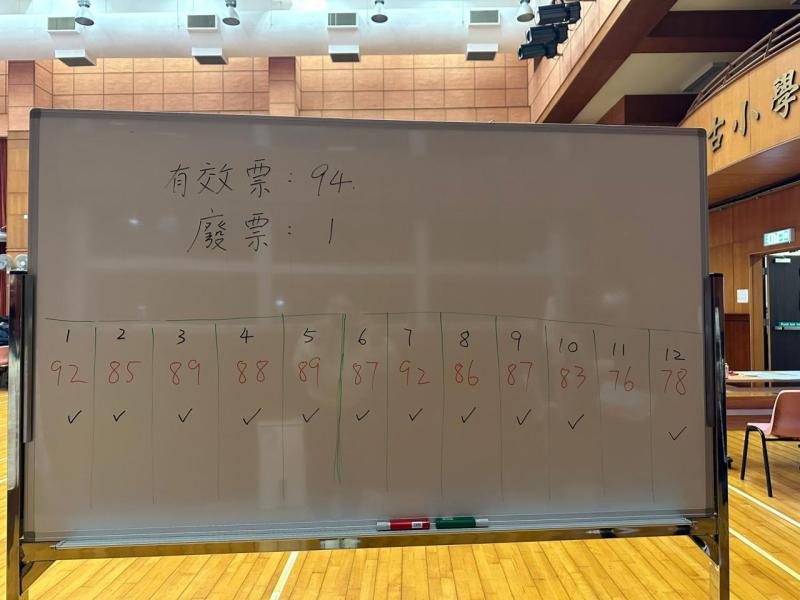 有效票：94.
廢票：1
1 2 3 4 5 6 7 8 9 10 11 12
92 85 89 88 89 87 92 86 87 83 76 78
✓ ✓ ✓ ✓ ✓ ✓ ✓ ✓ ✓ ✓ ✓
古小學
EXIT